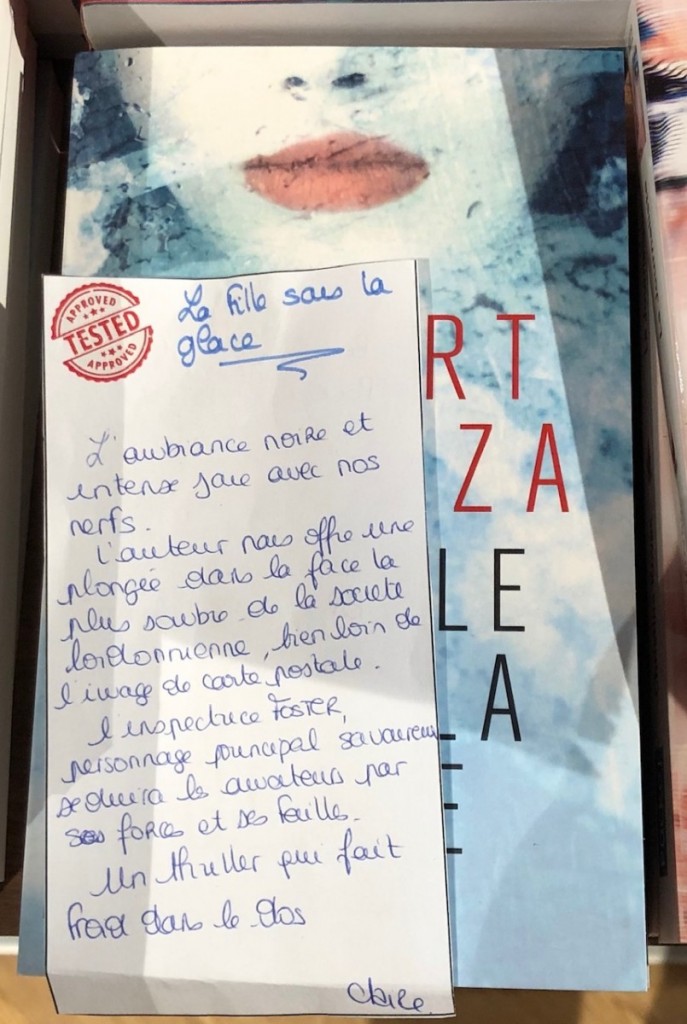 APPROVED
TESTED
APPROVED
La fille sous la
glace
L'ambiance noire et
intense joue avec nos
nerfs.
L'auteur nous offre une
plongée dans la face la
plus sombre de la société
londonnienne, bien loin de
l'image de carte postale.
l'inspectrice FOSTER,
personnage principal savoureux
séduira les amateurs par
ses forces et ses failles.
Un thriller qui fait
froid dans le dos
Claire.
RT
ZA
LE
LA
E